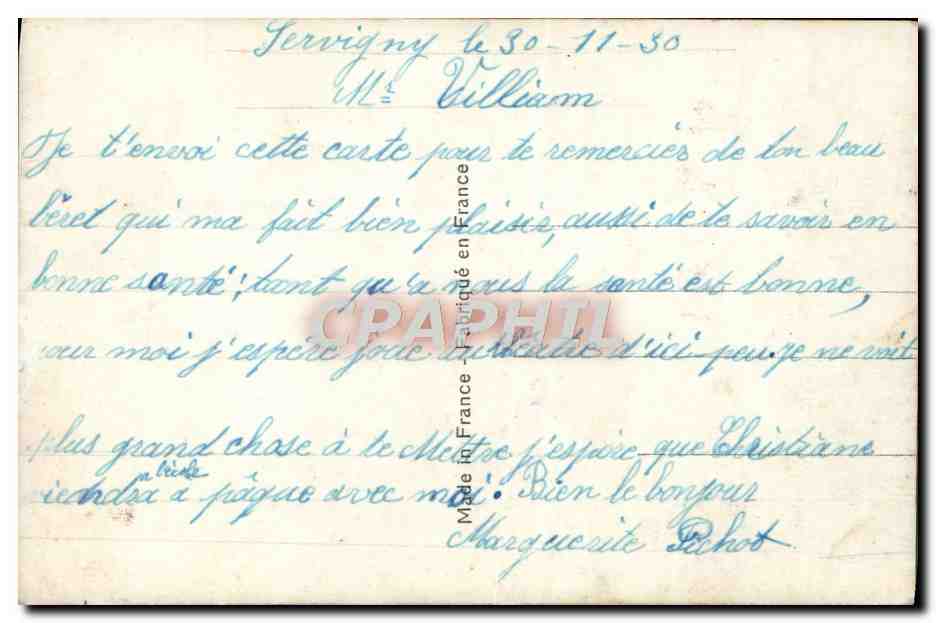 Servigny le 30-11-30
Mr William
Je t'envoi cette carte pour te remerciér de ton beau
béret qui ma fait bien plaisir, aussi de te savoir en
bonne santé; tant qu'a nous la santé est bonne,
pour moi j'espère d'ici peu je ne voit
plus grand chose à te Mettre j'espère que Christiane
viendra a l'école a pâque avec moi. Bien le bonjour
Marguerite Pichot
Made in France - Fabriqué en France
CPAPHIL